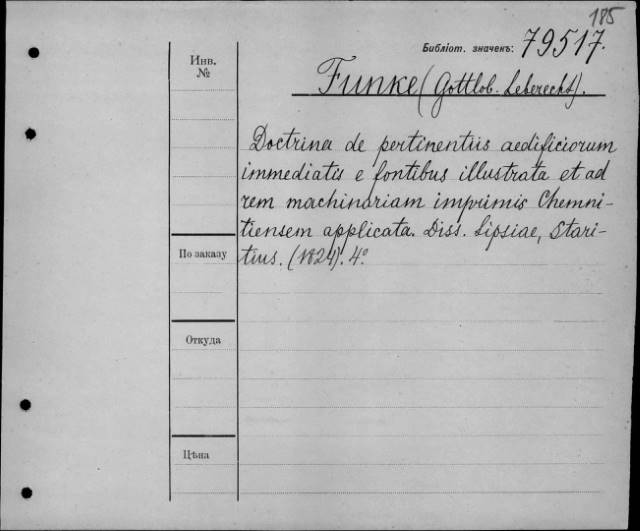 185
Библіот. значекъ: 79517.
Инв.
№
Funke (Gottlob. Leberecht).
Doctrina de pertinentiis aedificiorum
immediatis e fontibus illustrata et ad
rem machinariam imprimis Chemni-
tiensem applicata. Diss. Lipsiae, Stari-
tius. (1824). 4°
По заказу
Откуда
Цѣна